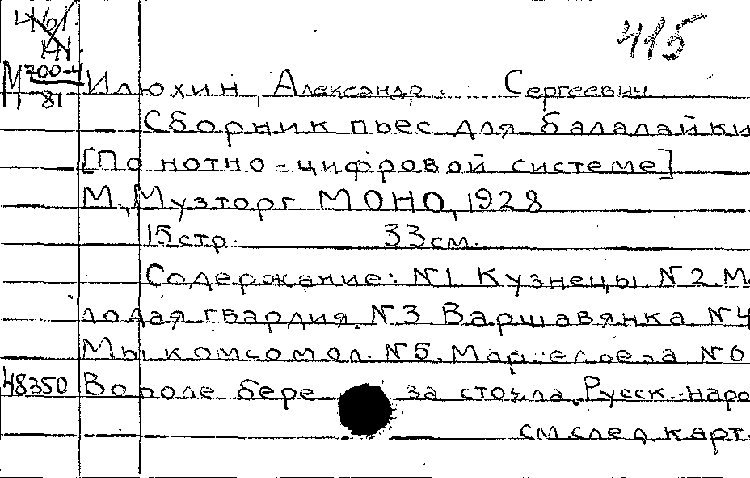 415
М 200-4
81
Илюхин Александр. Сергеевич
Сборник пьес для балалайки
[По нотно-цифровой системе]
М., Музторг МОНО, 1928
15стр. 33см.
Содержание: №1 Кузнецы №2 М
лодая гвардия. №3 Варшавянка №4
Мы комсомол. №5. Марсельеза №6
48350 Во поле бере за стояла. Русск. наро
см след карт